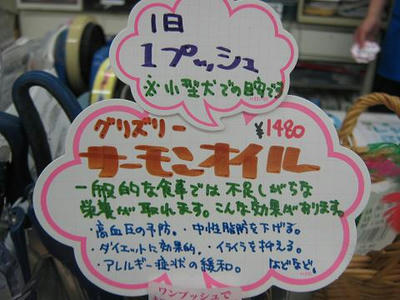 1日
1プッシュ
※小型犬での目安です
グリズリー
¥1480
サーモンオイル
一般的な食事では不足しがちな
栄養が取れます。こんな効果があります。
・高血圧の予防。・中性脂肪を下げる。
・ダイエットに効果的。・イライラを抑える。
・アレルギー症状の緩和。 などなど。
ワンプッシュで